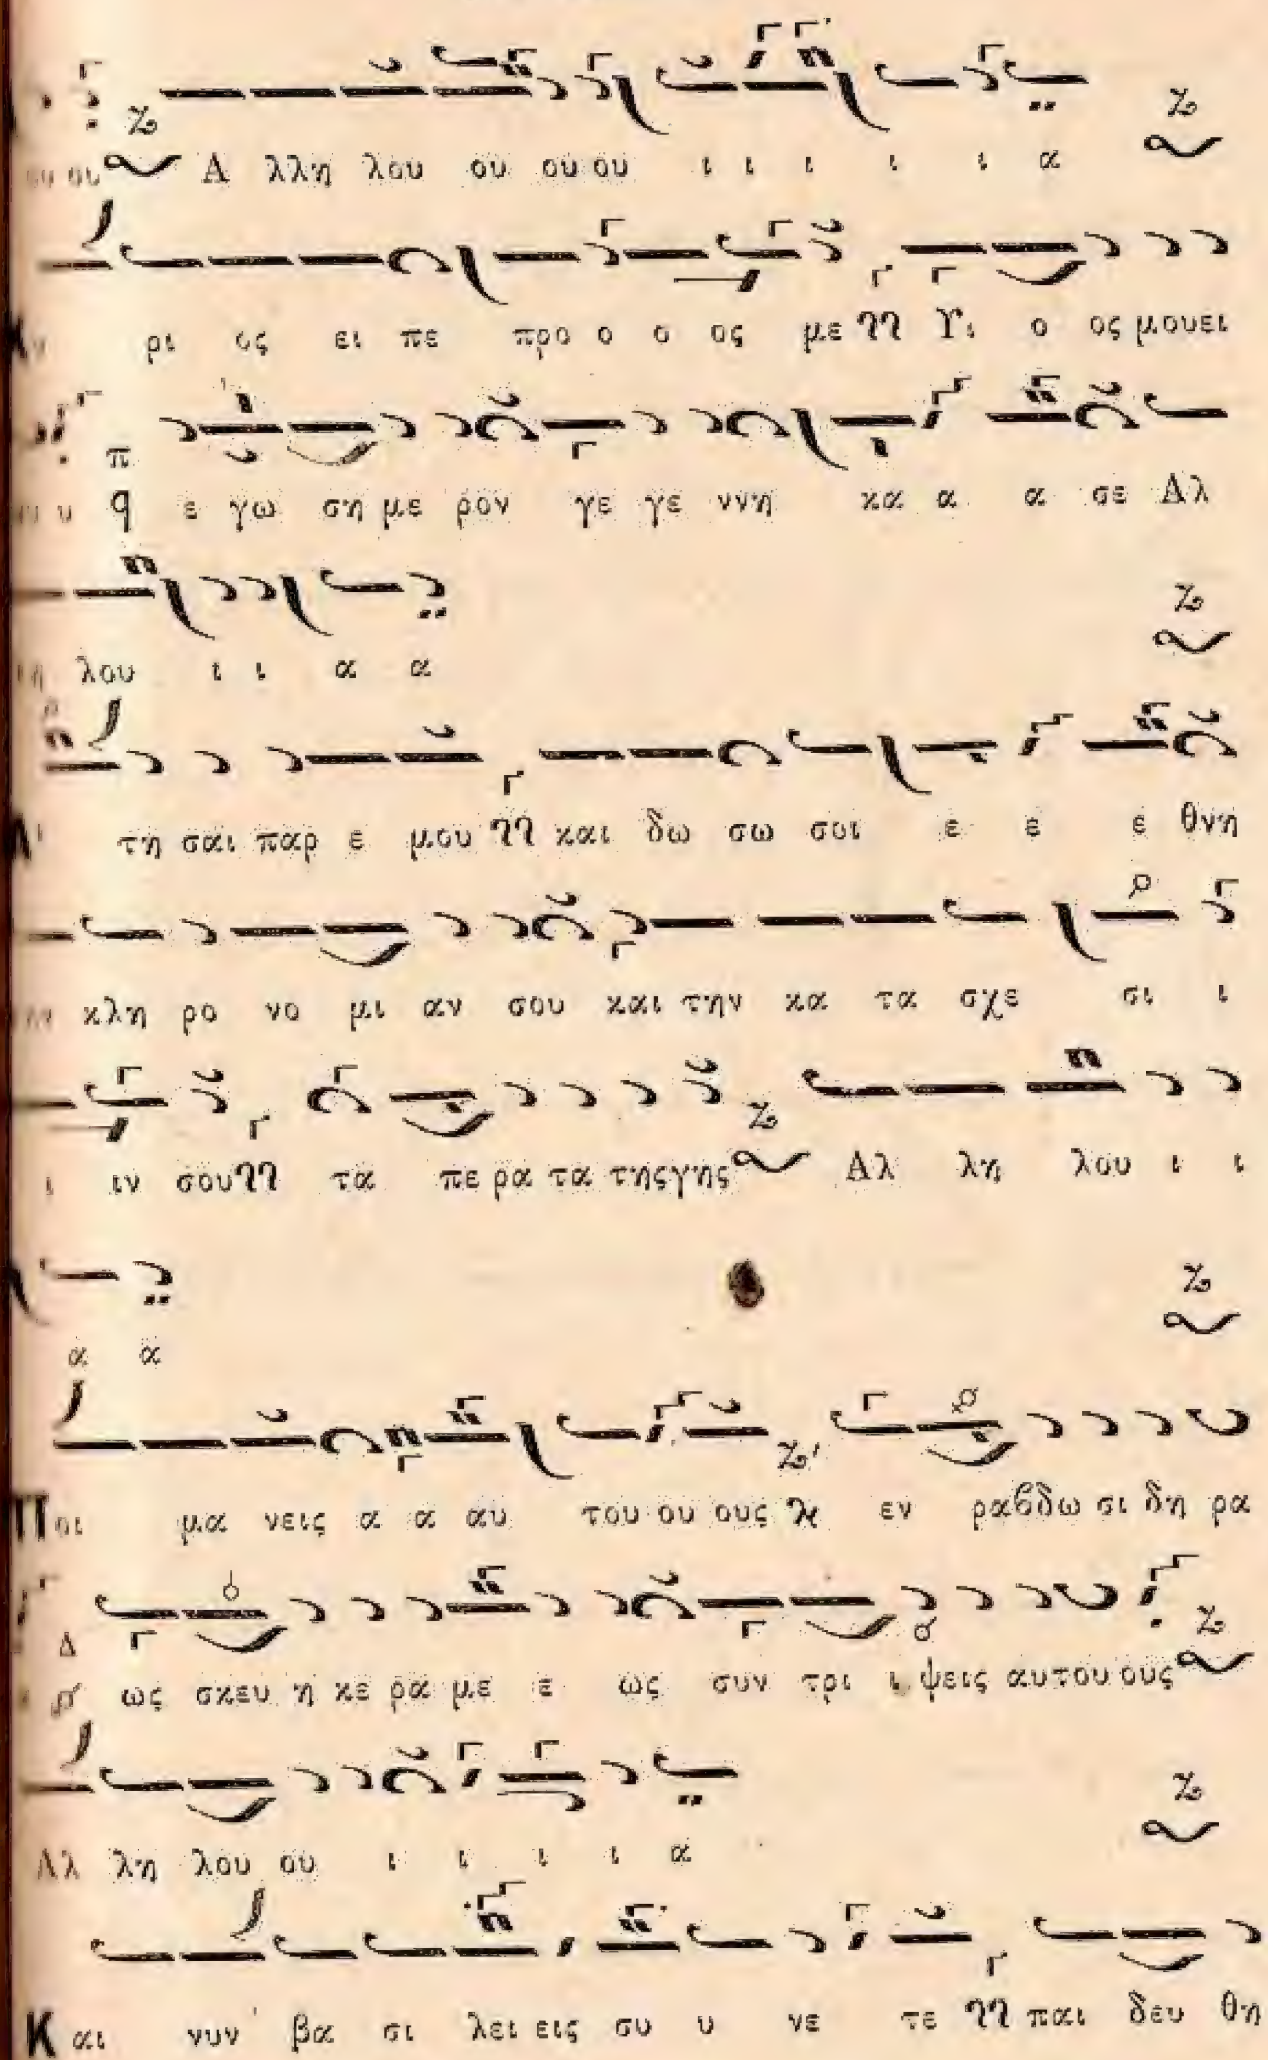 ου ου Α λλη λου ου ου ου ι ι ι ι ι α
ρι ος ει πε προ ο ο ος με Υι ο ος μου ει
υ ε γω ση με ρον γε γε ννη κα α α σε Αλ
λου ι ι α α
τη σαι παρ ε μου και δω σω σοι ε ε ε θνη
κλη ρο νο μι αν σου και την κα τα σχε σι ι
ι ιν σου τα πε ρα τα της γης Αλ λη λου ι ι
α α
Ποι μα νεις α α αυ του ου ους εν ραβδω σι δη ρα
ως σκευ η κε ρα με ε ως συν τρι ι ψεις αυ του ους
Αλ λη λου ου ι ι ι ι α
Και νυν βα σι λει εις συ υ νε τε παι δευ θη